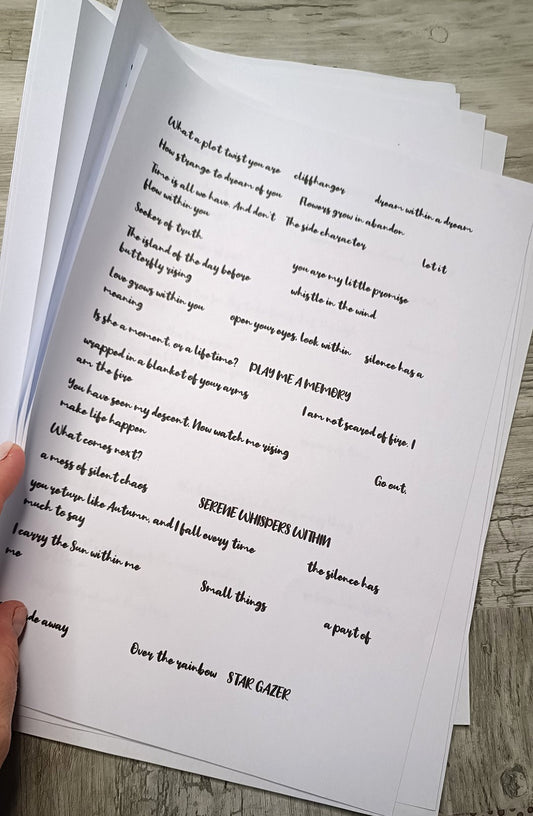 What a plot twist you are cliffhanger dream within a dream
How strange to dream of you Flowers grow in abandon
Time is all we have. And don't The side character let it
flow within you
Seeker of truth you are my little promise
The island of the day before whistle in the wind
butterfly rising
Love grows within you open your eyes, look within silence has a
meaning
Is she a moment, or a lifetime? PLAY ME A MEMORY
wrapped in a blanket of your arms I am not scared of fire, I
am the fire
You have seen my descent. Now watch me rising Go out,
make life happen
What comes next?
a mess of silent chaos SERENE WHISPERS WITHIN
you return like Autumn, and I fall every time the silence has
much to say
I carry the Sun within me Small things a part of
me
away Over the rainbow STAR GAZER